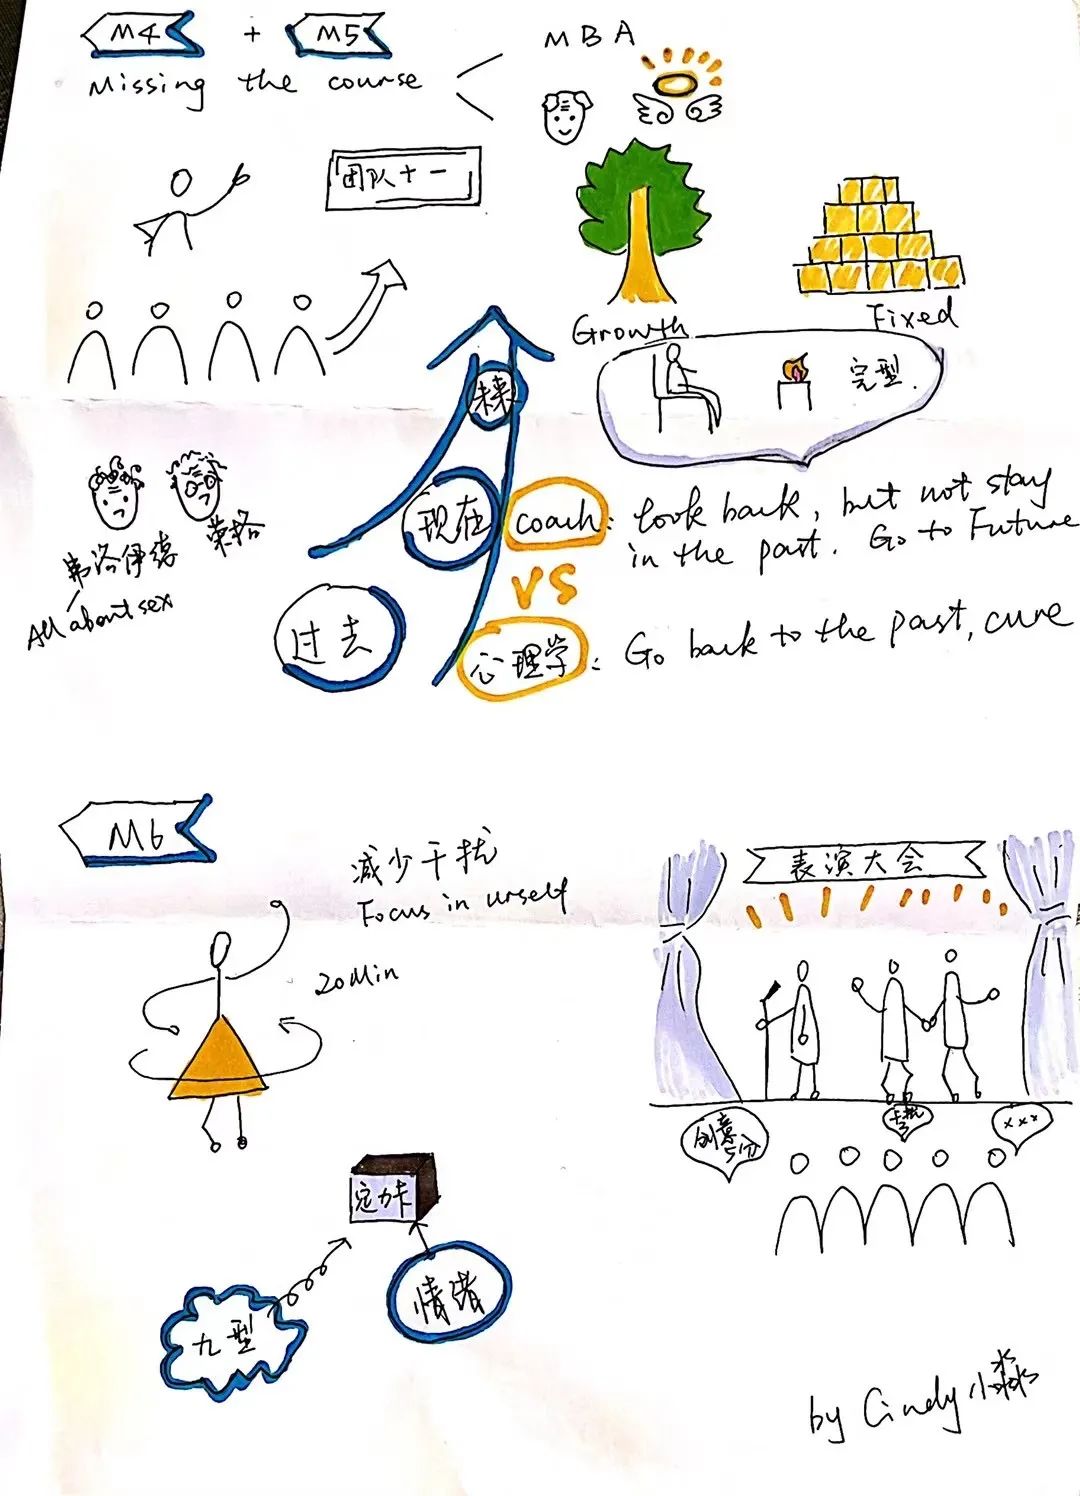 M4 + M5
Missing the course
MBA
团队十一
Growth
Fixed
完型.
未来
现在
过去
coach: look back, but not stay
in the past. Go to Future
VS
心理学: Go back to the past, cure
弗洛伊德
荣格
All about sex
M6
减少干扰
Focus in urself
20Min
表演大会
创意
5分
xxx
定力卡
九型
情绪
by Cindy小淼